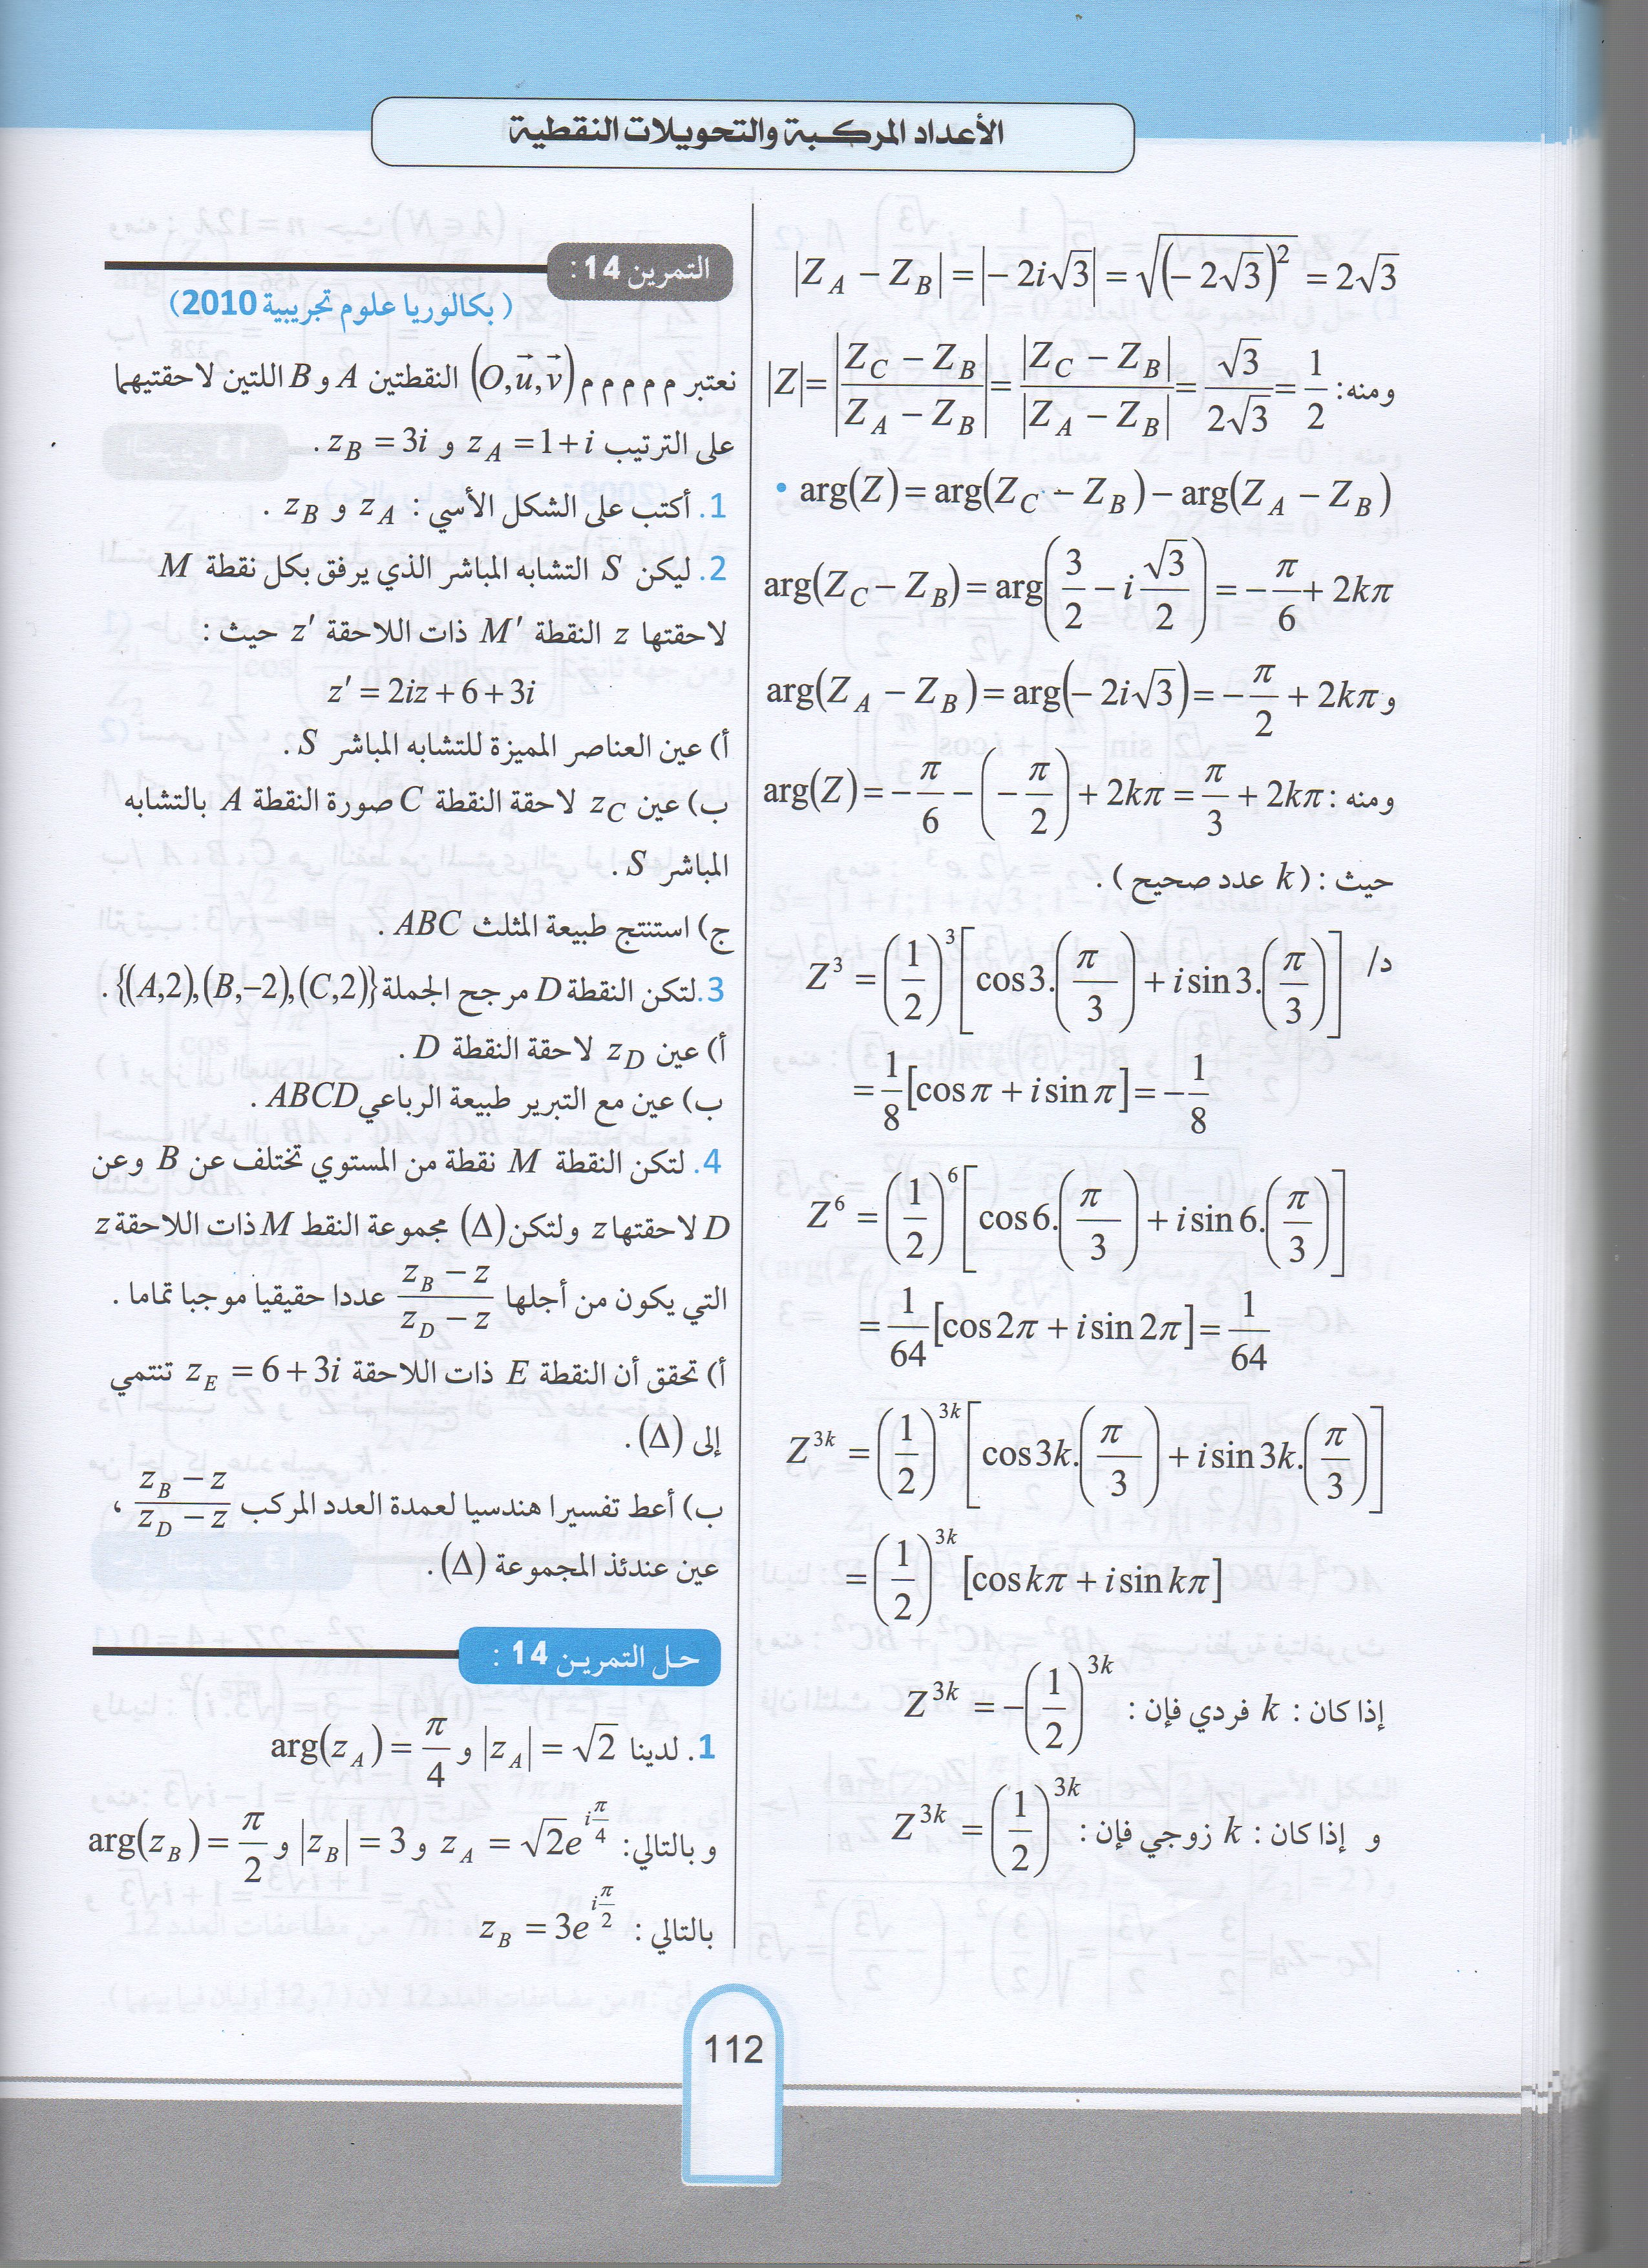 الأعداد المركبة والتحويلات النقطية
|Z_A − Z_B| = |−2i√3| = √((−2√3)²) = 2√3
ومنه: |Z| = |(Z_C − Z_B)/(Z_A − Z_B)| = |Z_C − Z_B|/|Z_A − Z_B| = √3/(2√3) = 1/2
• arg(Z) = arg(Z_C − Z_B) − arg(Z_A − Z_B)
arg(Z_C − Z_B) = arg(3/2 − i √3/2) = −π/6 + 2kπ
و arg(Z_A − Z_B) = arg(−2i√3) = −π/2 + 2kπ
ومنه: arg(Z) = −π/6 − (−π/2) + 2kπ = π/3 + 2kπ
حيث : (k عدد صحيح ) .
د/ Z³ = (1/2)³ [cos3.(π/3) + i sin3.(π/3)]
= 1/8 [cosπ + i sinπ] = −1/8
Z⁶ = (1/2)⁶ [cos6.(π/3) + i sin6.(π/3)]
= 1/64 [cos2π + i sin2π] = 1/64
Z^{3k} = (1/2)^{3k} [cos3k.(π/3) + i sin3k.(π/3)]
= (1/2)^{3k} [coskπ + i sinkπ]
إذا كان : k فردي فإن : Z^{3k} = −(1/2)^{3k}
و إذا كان : k زوجي فإن : Z^{3k} = (1/2)^{3k}
التمرين 14 :
( بكالوريا علوم تجريبية 2010)
نعتبر م م م م م (O,u⃗,v⃗) النقطتين A و B اللتين لاحقتيهما
على الترتيب z_A = 1+i و z_B = 3i .
1. أكتب على الشكل الأسي : z_A و z_B .
2. ليكن S التشابه المباشر الذي يرفق بكل نقطة M
لاحقتها z النقطة M′ ذات اللاحقة z′ حيث :
z′ = 2iz + 6 + 3i
أ) عين العناصر المميزة للتشابه المباشر S .
ب) عين z_C لاحقة النقطة C صورة النقطة A بالتشابه
المباشر S .
ج) استنتج طبيعة المثلث ABC .
3. لتكن النقطة D مرجح الجملة {(A,2),(B,−2),(C,2)} .
أ) عين z_D لاحقة النقطة D .
ب) عين مع التبرير طبيعة الرباعي ABCD .
4. لتكن النقطة M نقطة من المستوي تختلف عن B وعن
D لاحقتها z ولتكن (Δ) مجموعة النقط M ذات اللاحقة z
التي يكون من أجلها (z_B − z)/(z_D − z) عددا حقيقيا موجبا تماما .
أ) تحقق أن النقطة E ذات اللاحقة z_E = 6 + 3i تنتمي
إلى (Δ) .
ب) أعط تفسيرا هندسيا لعمدة العدد المركب (z_B − z)/(z_D − z) ،
عين عندئذ المجموعة (Δ) .
حل التمرين 14 :
1. لدينا |z_A| = √2 و arg(z_A) = π/4
و بالتالي: z_A = √2e^{iπ/4} و |z_B| = 3 و arg(z_B) = π/2
بالتالي : z_B = 3e^{iπ/2}
112